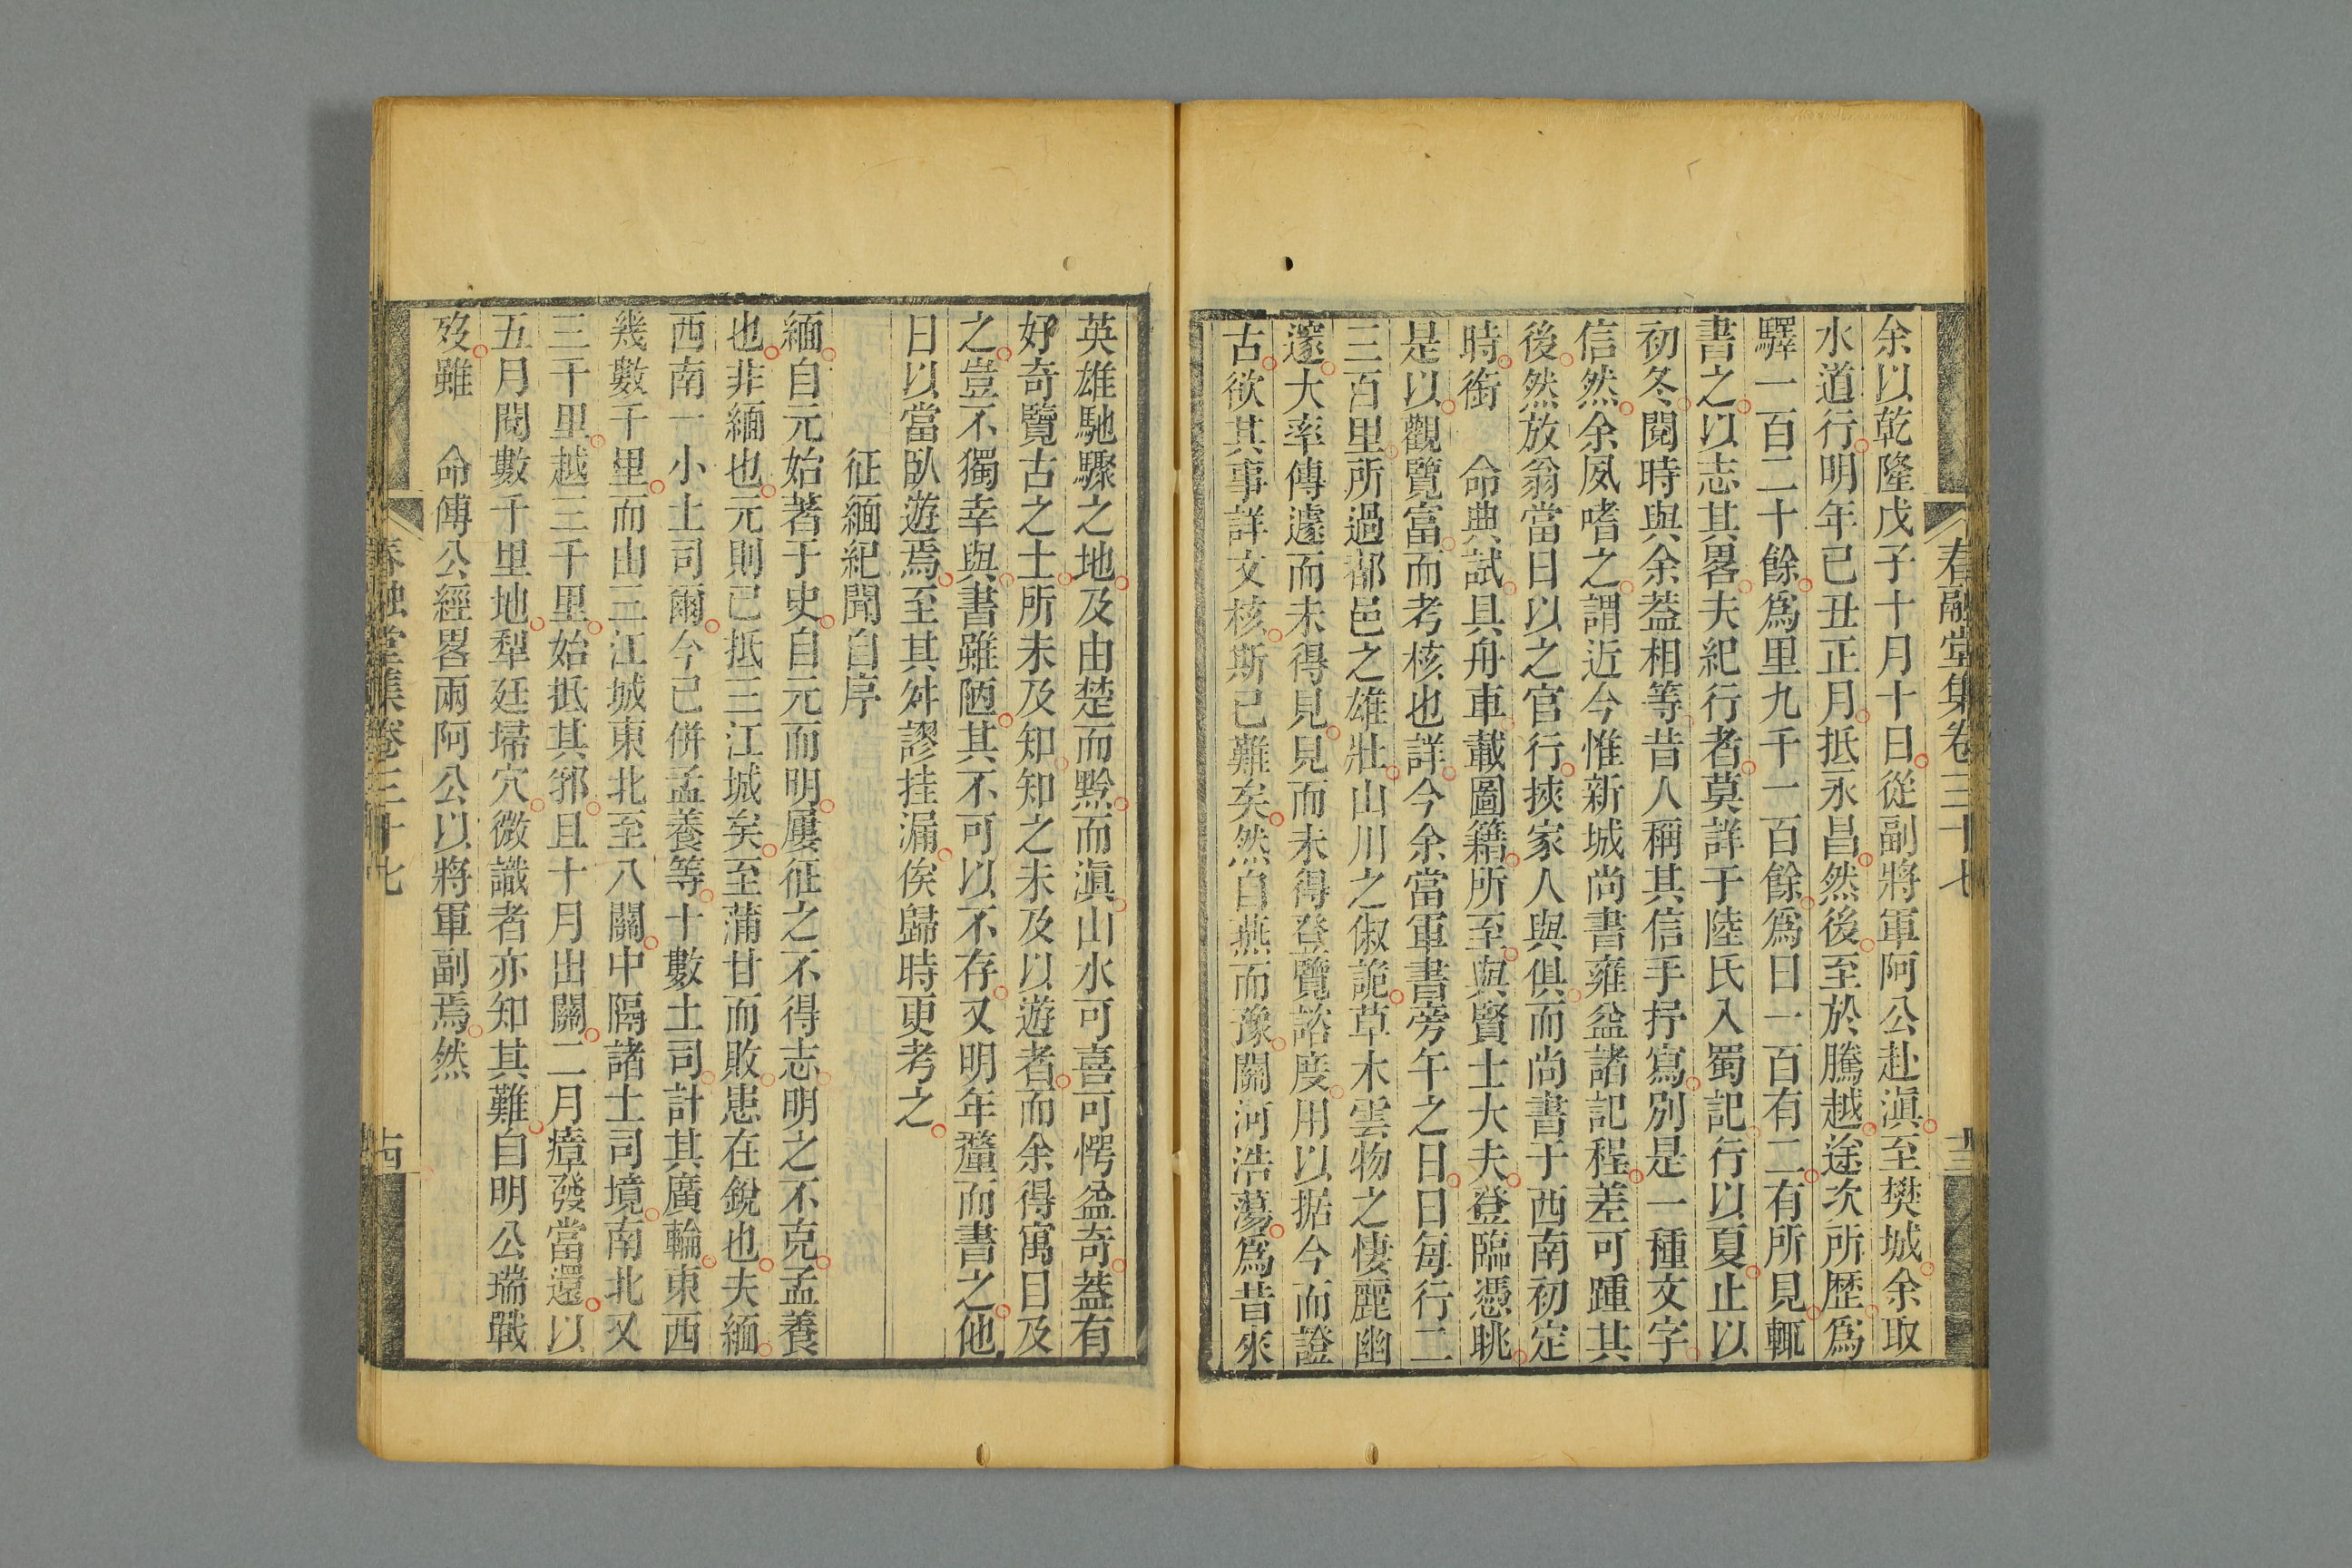 春融堂集卷三十七
十三
余以乾隆戊子十月十日從副將軍阿公赴滇至樊城余取
水道行明年己丑正月抵永昌然後至於騰越途次所歷爲
驛一百二十餘爲里九千一百餘爲日一百有二有所見輒
書之以志其畧夫紀行者莫詳于陸氏入蜀記行以夏止以
初冬閱時與余葢相等昔人稱其信手抒寫別是一種文字
信然余夙嗜之謂近今惟新城尚書雍益諸記程差可踵其
後然放翁當日以之官行挾家人與俱而尚書于西南初定
時銜　命典試具舟車載圖籍所至與賢士大夫登臨憑眺
是以觀覽富而考核也詳今余當軍書旁午之日日每行二
三百里所過都邑之雄壯山川之俶詭草木雲物之悽麗幽
邃大率傳遽而未得見見而未得登覽諮度用以据今而證
古欲其事詳文核斯已難矣然自燕而豫關河浩蕩爲昔來
英雄馳驟之地及由楚而黔而滇山水可喜可愕益奇葢有
好奇覽古之士所未及知知之未及以遊者而余得寓目及
之豈不獨幸與書雖陋其不可以不存又明年釐而書之他
日以當臥遊焉至其舛謬挂漏俟歸時更考之
征緬紀聞自序
緬自元始著于史自元而明屢征之不得志明之不克孟養
也非緬也元則已抵三江城矣至蒲甘而敗患在銳也夫緬
西南一小土司爾今已併孟養等十數土司計其廣輪東西
幾數千里而山三江城東北至八關中隔諸土司境南北又
三千里越三千里始抵其郛且十月出關二月瘴發當還以
五月閱數千里地犁廷埽穴微識者亦知其難自明公瑞戰
歿雖　命傅公經畧兩阿公以將軍副焉然
春融堂集卷三十七
十四